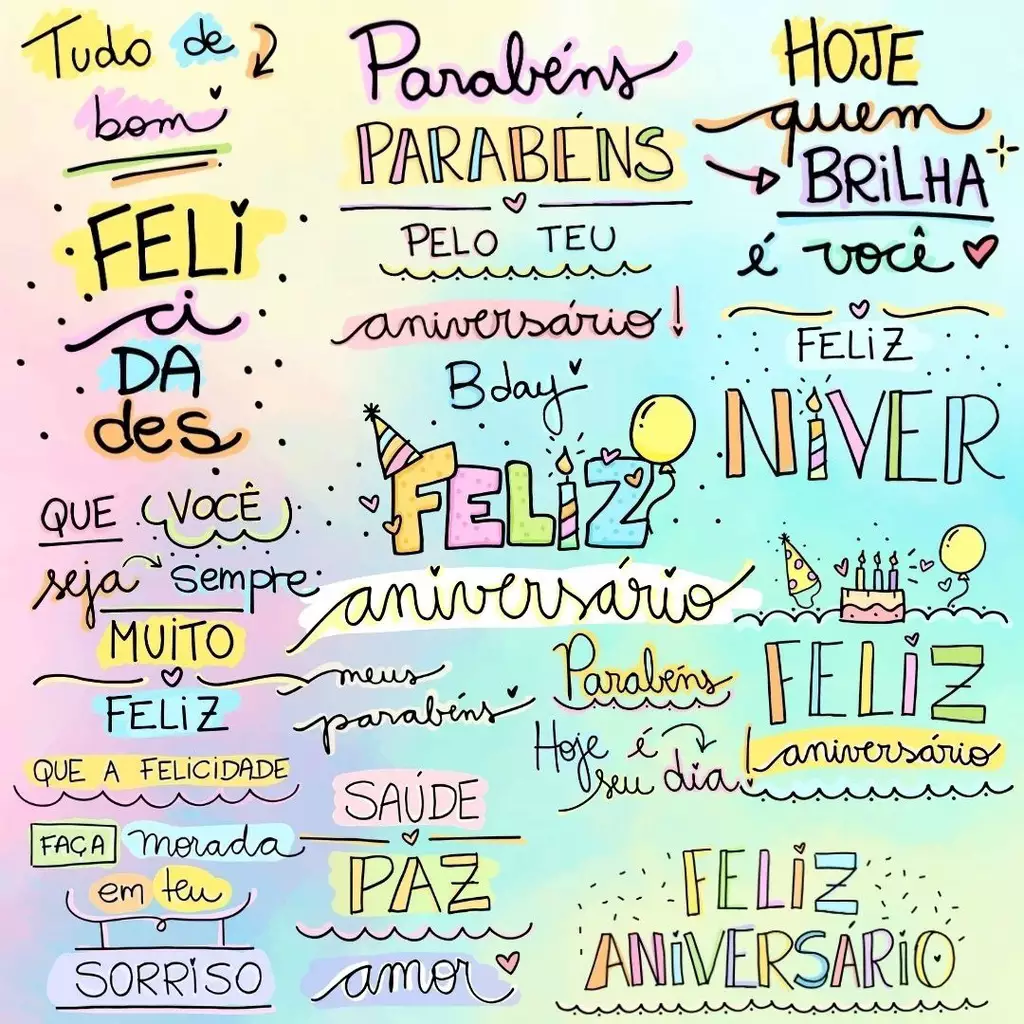 Tudo de
bom
FELI
ci
DA
des
QUE VOCÊ
seja sempre
MUITO
FELIZ
QUE A FELICIDADE
FAÇA morada
em teu
SORRISO
Parabéns
PARABÉNS
PELO TEU
aniversário!
Bday
FELIZ
aniversário
meus
parabéns
SAÚDE
PAZ
amor
HOJE
quem
BRILHA
é você
FELIZ
NIVER
Parabéns
Hoje é
seu dia!
FELIZ
aniversário
FELIZ
ANIVERSÁRIO